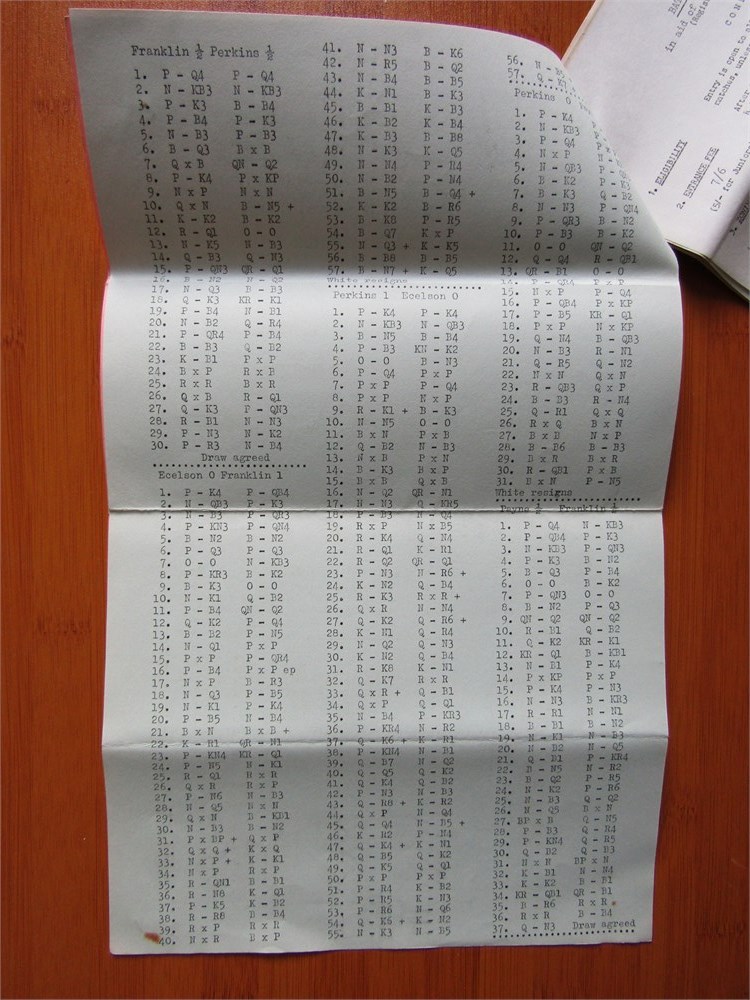 Franklin ½ Perkins ½
1. P - Q4 P - Q4
2. N - KB3 N - KB3
3. P - K3 B - B4
4. P - B4 P - K3
5. N - B3 P - B3
6. B - Q3 B x B
7. Q x B QN - Q2
8. P - K4 P x KP
9. N x P N x N
10. Q x N B - N5 +
11. K - K2 B - K2
12. R - Q1 O - O
13. N - K5 N - B3
14. Q - B3 Q - B2
15. P - QN3 QR - Q1
16. B - N2 N - Q5
17. N - Q3 B - B3
18. Q - K3 KR - K1
19. P - B4 N - B1
20. N - B2 Q - R4
21. P - QR4 P - B4
22. B - B3 Q - B2
23. K - B1 P x P
24. B x P R x B
25. R x R B x R
26. Q x B R - Q1
27. Q - K3 P - QN3
28. R - B1 N - N3
29. P - N3 N - K2
30. P - R3 N - B4
Draw agreed
Ecelson 0 Franklin 1
1. P - K4 P - QB4
2. N - QB3 P - K3
3. N - B3 P - QR3
4. P - KN3 P - QN4
5. B - N2 B - N2
6. P - Q3 P - Q3
7. O - O N - KB3
8. P - KR3 B - K2
9. B - K3 O - O
10. N - K1 Q - B2
11. P - B4 QN - Q2
12. Q - K2 P - Q4
13. Q - B2 P - N5
14. N - Q1 P x P
15. P x P P - QR4
16. P - B4 P x P ep
17. N x P B - R3
18. N - Q3 P - B5
19. N - K1 P - K4
20. P - B5 N - B4
21. B x N B x B +
22. K - R1 QR - N1
23. P - KN4 KR - Q1
24. P - N5 N - K1
25. R - Q1 R x R
26. Q x R R x P
27. P - N6 N - B3
28. N - Q5 N x N
29. Q x N B - KB1
30. N - B3 B - N2
31. P x BP + Q x P
32. Q x Q + K x Q
33. N x P + K - K1
34. N x P R x P
35. R - QN1 B - B1
36. R - N8 K - Q1
37. P - K5 K - B2
38. R - R8 B - B4
39. R x P R x R
40. N x R B x P
41. N - N3 B - K6
42. N - R5 B - Q2
43. N - B4 B - B5
44. K - N1 B - K3
45. B - B1 K - B3
46. K - B2 K - B4
47. K - B3 B - B8
48. N - K3 K - Q5
49. N - N4 P - N4
50. N - B2 P - N4
51. B - N5 B - Q4 +
52. K - K2 B - R6
53. B - K8 P - R5
54. B - Q7 K x P
55. N - Q3 + K - K5
56. B - B8 B - B5
57. B - N7 + K - Q5
White resigns
Perkins 1 Ecelson 0
1. P - K4 P - K4
2. N - KB3 N - QB3
3. B - N5 B - B4
4. P - B3 KN - K2
5. O - O B - N3
6. P - Q4 P x P
7. P x P P - Q4
8. P x P N x P
9. R - K1 + B - K3
10. N - N5 O - O
11. B x N P x B
12. Q - B2 N - B3
13. N x B P x N
14. B - K3 B x P
15. B x B Q x B
16. N - Q2 QR - N1
17. N - N3 Q - KR5
18. P - B3 N - Q4
19. R x P N x B5
20. R - K4 Q - N4
21. R - Q1 K - R1
22. R - Q2 QR - Q1
23. P - N3 N - R6 +
24. K - N2 Q - B4
25. R - K3 R x R +
26. Q x R N - N4
27. Q - K2 Q - R6 +
28. K - N1 Q - R4
29. N - Q2 N - Q3
30. K - N2 Q - B4
31. R - K8 K - N1
32. Q - K7 R x R
33. Q x R + Q - B1
34. Q x P Q - Q1
35. N - B4 P - KR3
36. P - KR4 N - R2
37. Q - K6 + K - R1
38. P - KN4 N - B1
39. Q - B7 N - Q2
40. Q - Q5 Q - K2
41. Q - K4 Q - B2
42. P - N3 N - B3
43. Q - R8 + K - R2
44. Q x P N - Q4
45. Q - Q4 N - B5 +
46. K - N2 P - N4
47. Q - K4 + K - N1
48. Q - B5 Q - K2
49. Q - K5 Q - Q1
50. P x P P x P
51. P - R4 K - B2
52. P - R5 K - N3
53. P - R6 N - Q6
54. Q - K6 + K - N2
55. N - K3 N - B5
56. N - B5
57. Q - K7
Perkins 0
1. P - K4
2. N - KB3
3. P - Q4
4. N x P
5. N - QB3
6. B - K2 P
7. B - K3 Q - B2
8. N - N3 P - QN4
9. P - QR3 B - N2
10. P - B3 B - K2
11. O - O QN - Q2
12. Q - Q4 R - QB1
13. QR - B1 O - O
14. P - QR4 P x P
15. N x P P - Q4
16. P - QB4 P x KP
17. P - B5 KR - Q1
18. P x P N x KP
19. Q - N4 B - QB3
20. N - B3 R - N1
21. Q - R5 Q - N2
22. N x N Q x N
23. R - QB3 Q x P
24. B - B3 R - N4
25. Q - R1 Q x Q
26. R x Q B x N
27. B x B N x P
28. B - B6 B - B3
29. B x R B x R
30. R - QB1 P x B
31. B x N P - N5
White resigns
Payne ½ Franklin ½
1. P - Q4 N - KB3
2. P - QB4 P - K3
3. N - KB3 P - QN3
4. P - K3 B - N2
5. B - Q3 P - B4
6. O - O B - K2
7. P - QN3 O - O
8. B - N2 P - Q3
9. QN - Q2 QN - Q2
10. R - B1 Q - B2
11. Q - K2 KR - K1
12. KR - Q1 B - KB1
13. N - B1 P - K4
14. P x KP P x P
15. P - K4 P - N3
16. N - N3 B - KR3
17. R - R1 N - N1
18. B - B1 B - N2
19. N - K1 N - B3
20. N - B2 N - Q5
21. Q - B1 P - KR4
22. B - N5 N - R2
23. B - Q2 P - R5
24. N - K2 P - R6
25. N - B3 Q - Q2
26. N - Q5 B x N
27. BP x B Q - N5
28. P - B3 Q - N4
29. P - KN4 Q - R5
30. Q - B2 Q - B3
31. N x N BP x N
32. K - B1 N - N4
33. K - K2 B - B1
34. KR - QB1 QR - B1
35. B - R6 R x R
36. R x R B - B4
37. Q - N3 Draw agreed
in aid of
(Regis
CON
Entry is open to all
catches, unles
1. ELIGIBILITY
2. ENTRANCE FEE
7/6
(5/- for Junior
After